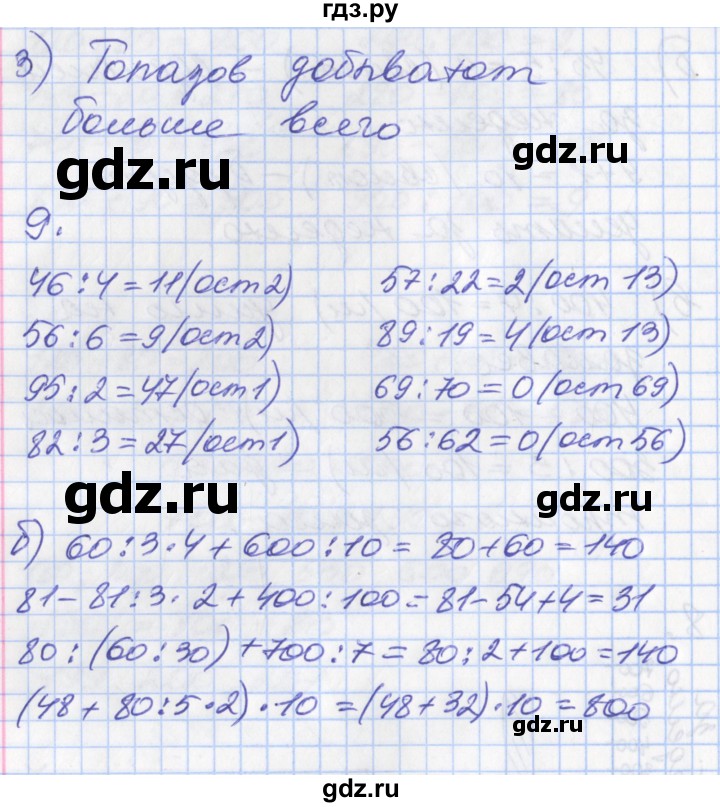 гдз.ру
3) Топазов добывают
больше всего
gdz.ru
gdz.ru
9.
46:4=11(ост2)
57:22=2(ост 13)
56:6=9(ост2)
89:19=4(ост 13)
95:2=47(ост1)
69:70=0(ост 69)
82:3=27(ост1)
56:62=0(ост 56)
gdz.ru
gdz.ru
б) 60:3·4+600:10= 80+60=140
81-81:3·2+400:100=81-54+4=31
80:(60:30)+700:7=80:2+100=140
(48+80:5·2)·10=(48+32)·10=800
gdz.ru
gdz.ru